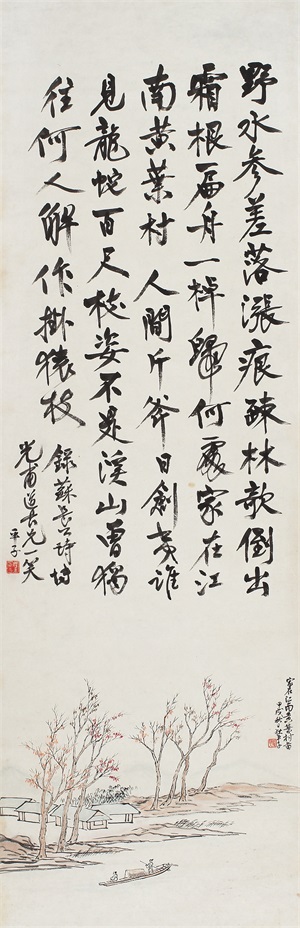 野水參差落漲痕疎林欹倒出
霜根扁舟一棹歸何處家在江
南黃葉村人間斤斧日創夷誰
見龍蛇百尺枝姿不是溪山曾獨
往何人解作掛猿枝
錄蘇長公詩博
光甫道長兄一笑
平子
家在江南黃葉村
甲戌秋平子